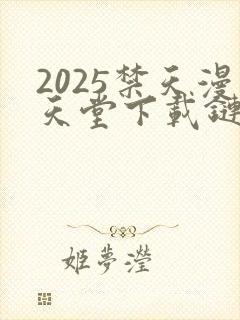 2025禁天漫
天堂下載鏈
姬夢瀅